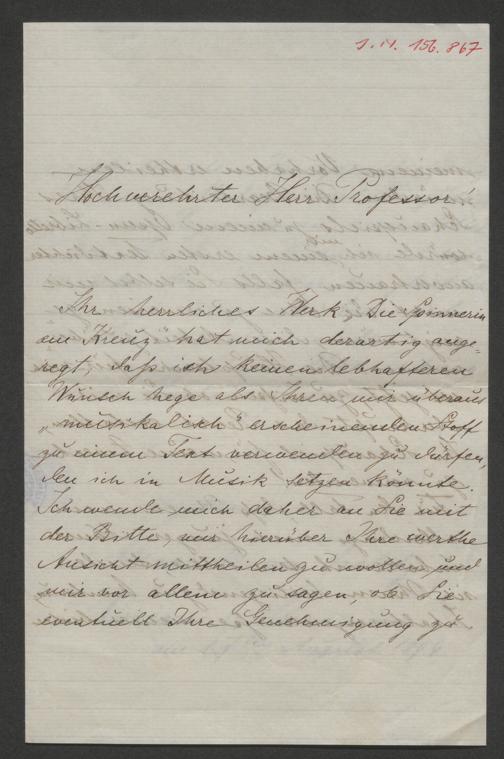 J. N. 156.867
Hochverehrter Herr Professor!
Ihr herrliches Werk Die Spinnerin
am Kreuz hat mich derartig ange-
regt daß ich keinen lebhafteren
Wunsch hege als Ihren mir überaus
„musikalisch" erscheinenden Stoff
zu einem Text verwenden zu dürfen,
den ich in Musik setzen könnte.
Ich wende mich daher an Sie mit
der Bitte, mir hierüber Ihre werthe
Ansicht mittheilen zu wollen und
mir vor allem zu sagen, ob Sie
eventuell Ihre Genehmigung zu